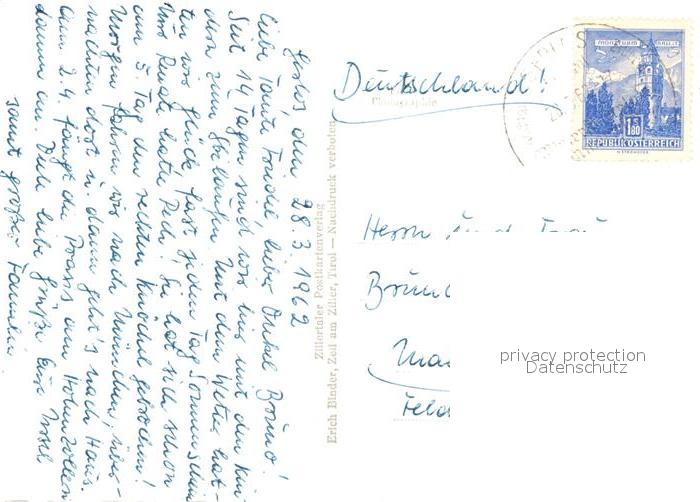 Gerlos, den 28.3.1962
Liebe Tante Friedel, lieber Onkel Bruno!
Seit 14 Tagen sind wir hier mit den Kin-
dern zum Skilaufen. Mit dem Wetter hat-
ten wir Glück, fast jeden Tag Sonnenschein
Und Renate hatte Pech! Sie hat sich schon
am 5. Tag den rechten Knöchel gebrochen!
Morgen fahren wir nach München, über-
nachten dort u. dann geht's nach Haus.
Am 2.4 fängt die Praxis am Hohenzollern-
damm an. Viele liebe Grüße Eure
samt großer Familie.
Zillertaler Postkartenverlag
Erich Binder, Zell am Ziller, Tirol — Nachdruck verboten
Deutschland!
Photographie
REPUBLIK ÖSTERREICH
1.80
Herrn und Frau
Bruno
privacy protection
Datenschutz